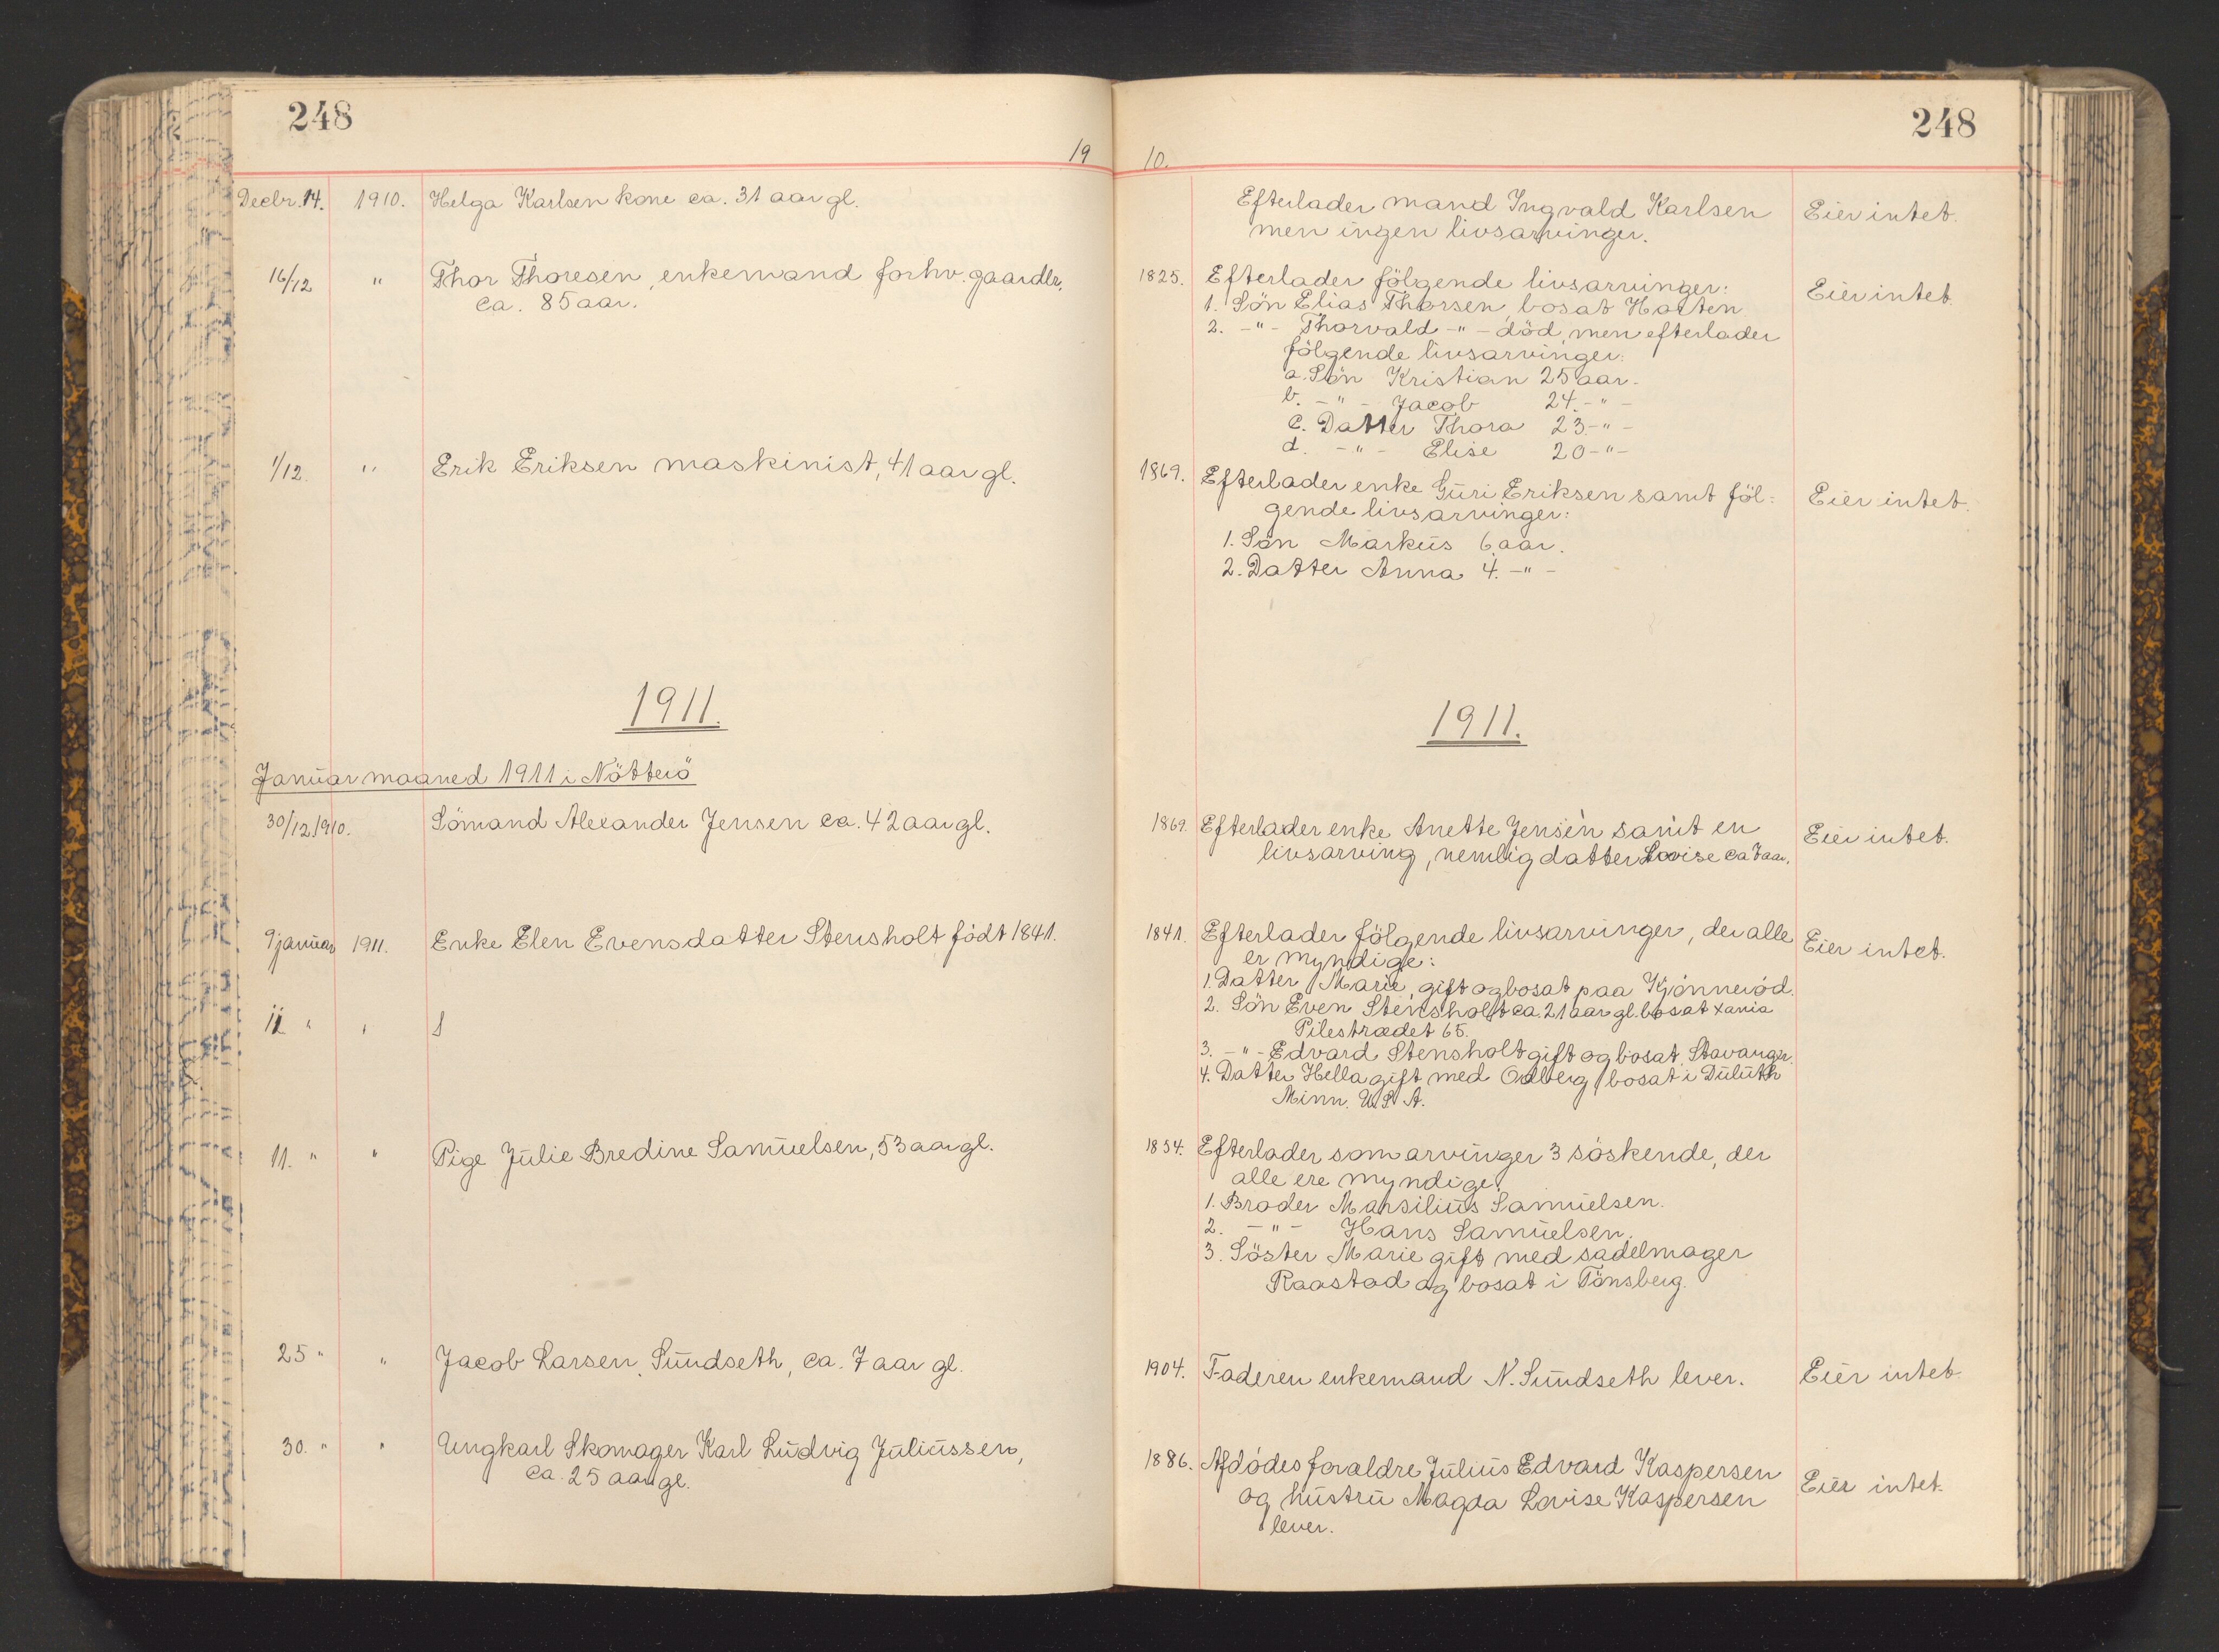 248
19
Decbr. 14. 1910. Helga Karlsen kone ca. 31 aar gl.
16/12 " Thor Thoresen, enkemand forhv. gaardbr,
ca. 85 aar.
1/12. " Erik Eriksen maskinist, 41 aar gl.
1911.
Januar maaned 1911 i Nötterö
30/12 1910. Sömand Alexander Jensen ca. 42 aar gl.
9 januar 1911. Enke Elen Evensdatter Stensholt födt 1841.
11 " "
11. " " Pige Julie Bredine Samuelsen, 53 aar gl.
25 " " Jacob Larsen Sundseth, ca. 7 aar gl.
30. " " Ungkarl Skomager Karl Ludvig Juliussen,
ca. 25 aar gl.
248
10.
Efterlader mand Ingvald Karlsen Eier intet.
men ingen livsarvinger.
1825. Efterlader fölgende livsarvinger: Eier intet.
1. Sön Elias Thorsen, bosat Horten
2. -"- Thorvald -"- död, men efterlader
fölgende livsarvinger:
a. Sön Kristian 25 aar.
b. -"- Jacob 24. -"-
c. Datter Thora 23 -"-
d. -"- Elise 20 -"-
1869. Efterlader enke Guri Eriksen samt föl- Eier intet.
gende livsarvinger:
1. Sön Markus 6 aar.
2. Datter Anna 4. -"-
1911.
1869. Efterlader enke Anette Jensen samt en Eier intet.
livsarving, nemlig datter Lovise ca 7 aar.
1841. Efterlader fölgende livsarvinger, der alle Eier intet.
er myndige:
1. Datter Marie, gift og bosat paa Kjönneröd.
2. Sön Even Stensholt ca. 21 aar gl. bosat Xania
Pilestrædet 65.
3. -"- Edvard Stensholt gift og bosat Stavanger.
4. Datter Hella gift med Odberg, bosat i Duluth
Minn. U.S.A.
1854. Efterlader som arvinger 3 söskende, der
alle ere myndige:
1. Broder Marsilius Samuelsen.
2. -"- Hans Samuelsen.
3. Söster Marie gift med sadelmager
Raastad og bosat i Tönsberg.
1904. Faderen enkemand N. Sundseth lever. Eier intet
1886. Afdödes forældre Julius Edvard Kaspersen Eier intet.
og hustru Magda Lovise Kaspersen
lever.